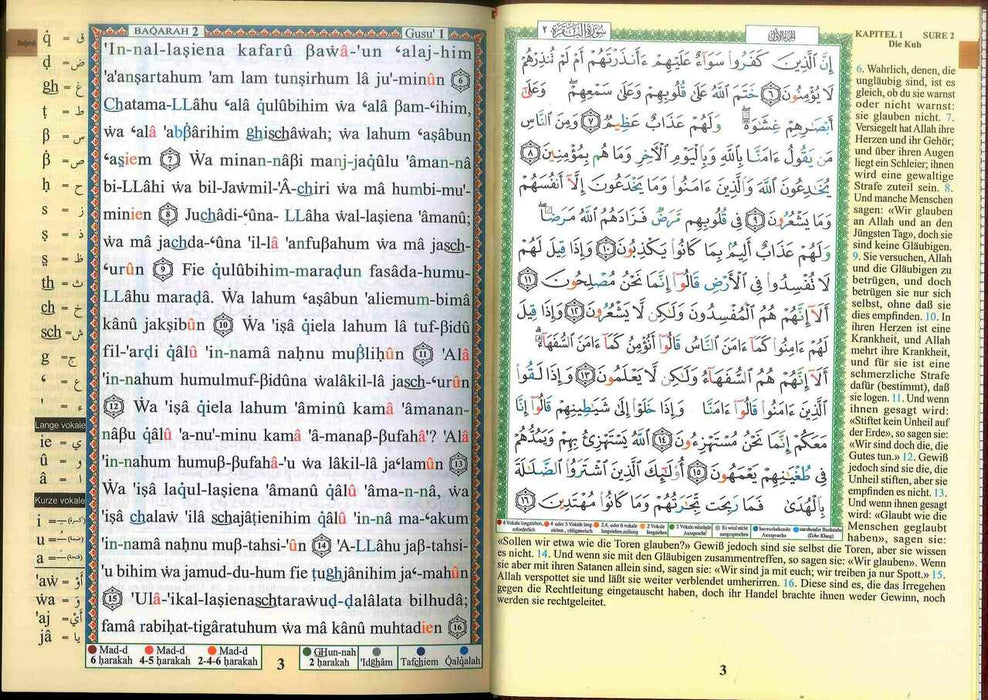 BAQARAH 2
Gusu' 1
'In-nal-laṣiena kafarû βaẇâ-'un ʿalaj-him
'a'anṣartahum 'am lam tunṣirhum lâ ju'-minûn 6
Chatama-LLâhu ʿalâ q̇ulûbihim ẇa ʿalâ βam-ʿihim,
ẇa ʿalâ 'abβ̣ârihim ghischâẇah; ẇa lahum ʿaṣâbun
ʿaṣiem 7 Ẇa minan-nâβi manj-jaq̇ûlu 'âman-nâ
bi-LLâhi ẇa bil-Jaẇmil-'Â-chiri ẇa mâ humbi-mu'-
minien 8 Juchâdi-ʿûna- LLâha ẇal-laṣiena 'âmanû;
ẇa mâ jachda-ʿûna 'il-lâ 'anfuβahum ẇa mâ jasch-
ʿurûn 9 Fie q̇ulûbihim-maraḍun fasâda-humu-
LLâhu maraḍâ. Ẇa lahum ʿaṣâbun 'aliemum-bimâ
kânû jakṣibûn 10 Ẇa 'iṣâ q̇iela lahum lâ tuf-βidû
fil-'arḍi q̇âlû 'in-namâ naḥnu muβ̣liḥûn 11 'Alâ
'in-nahum humulmuf-βidûna ẇalâkil-lâ jasch-ʿurûn
12 Ẇa 'iṣâ q̇iela lahum 'âminû kamâ 'âmanan-
nâβu q̇âlû 'a-nu'-minu kamâ 'â-manaβ-βufahâ'? 'Alâ
'in-nahum humuβ-βufahâ-'u ẇa lâkil-lâ jaʿlamûn 13
Ẇa 'iṣâ laq̇ul-laṣiena 'âmanû q̇âlû 'âma-n-nâ, ẇa
'iṣâ chalaẇ 'ilâ schajâṭienihim q̇âlû 'in-nâ ma-ʿakum
'in-namâ naḥnu muβ-tahsi-'ûn 14 'A-LLâhu jaβ-tahsi-
'u bihim ẇa jamud-du-hum fie ṭughjânihim jaʿ-mahûn
15 'Ulâ-'ikal-laṣienaschtaraẇuḍ-ḍalâlata bilhudâ;
famâ rabiḥat-tigâratuhum ẇa mâ kânû muhtadien 16
q̇ = ق
ḍ = ض
gh = غ
ṭ = ط
β = س
β̣ = ص
ḥ = ح
s = ز
ṣ = ذ
ṣ = ظ
th = ث
ch = خ
sch = ش
g = ج
ʿ = ع
' = ء
Lange vokale
ie = ي
û = و
â = ا
Kurze vokale
i =
u =
a =
'aẇ = أَوْ
ẇa = وَ
'aj = أَيْ
jâ = يَا
Mad-d
6 ḥarakah
Mad-d
4-5 ḥarakah
Mad-d
2-4-6 ḥarakah
3
GHun-nah
2 ḥarakah
'Idghâm
Tafchiem
Q̇alq̇alah
سُورَةُ الْبَقَرَةِ ٢
الجزء الأول
إِنَّ الَّذِينَ كَفَرُوا سَوَاءٌ عَلَيْهِمْ ءَأَنذَرْتَهُمْ أَمْ لَمْ تُنذِرْهُمْ
لَا يُؤْمِنُونَ ٦ خَتَمَ اللَّهُ عَلَىٰ قُلُوبِهِمْ وَعَلَىٰ سَمْعِهِمْ وَعَلَىٰ
أَبْصَارِهِمْ غِشَاوَةٌ وَلَهُمْ عَذَابٌ عَظِيمٌ ٧ وَمِنَ النَّاسِ
مَن يَقُولُ ءَامَنَّا بِاللَّهِ وَبِالْيَوْمِ الْآخِرِ وَمَا هُم بِمُؤْمِنِينَ ٨
يُخَادِعُونَ اللَّهَ وَالَّذِينَ ءَامَنُوا وَمَا يَخْدَعُونَ إِلَّا أَنفُسَهُمْ
وَمَا يَشْعُرُونَ ٩ فِي قُلُوبِهِم مَّرَضٌ فَزَادَهُمُ اللَّهُ مَرَضًا
وَلَهُمْ عَذَابٌ أَلِيمٌ بِمَا كَانُوا يَكْذِبُونَ ١٠ وَإِذَا قِيلَ لَهُمْ
لَا تُفْسِدُوا فِي الْأَرْضِ قَالُوا إِنَّمَا نَحْنُ مُصْلِحُونَ ١١
أَلَا إِنَّهُمْ هُمُ الْمُفْسِدُونَ وَلَٰكِن لَّا يَشْعُرُونَ ١٢ وَإِذَا قِيلَ
لَهُمْ ءَامِنُوا كَمَا ءَامَنَ النَّاسُ قَالُوا أَنُؤْمِنُ كَمَا ءَامَنَ السُّفَهَاءُ
أَلَا إِنَّهُمْ هُمُ السُّفَهَاءُ وَلَٰكِن لَّا يَعْلَمُونَ ١٣ وَإِذَا لَقُوا
الَّذِينَ ءَامَنُوا قَالُوا ءَامَنَّا وَإِذَا خَلَوْا إِلَىٰ شَيَاطِينِهِمْ قَالُوا إِنَّا
مَعَكُمْ إِنَّمَا نَحْنُ مُسْتَهْزِءُونَ ١٤ اللَّهُ يَسْتَهْزِئُ بِهِمْ وَيَمُدُّهُمْ
فِي طُغْيَانِهِمْ يَعْمَهُونَ ١٥ أُولَٰئِكَ الَّذِينَ اشْتَرَوُا الضَّلَالَةَ
بِالْهُدَىٰ فَمَا رَبِحَت تِّجَارَتُهُمْ وَمَا كَانُوا مُهْتَدِينَ ١٦
KAPITEL 1 SURE 2
Die Kuh
6. Wahrlich, denen, die
ungläubig sind, ist es
gleich, ob du sie warnst
oder nicht warnst:
sie glauben nicht. 7.
Versiegelt hat Allah ihre
Herzen und ihr Gehör;
und über ihren Augen
liegt ein Schleier; ihnen
wird eine gewaltige
Strafe zuteil sein. 8.
Und manche Menschen
sagen: «Wir glauben
an Allah und an den
Jüngsten Tag», doch sie
sind keine Gläubigen.
9. Sie versuchen, Allah
und die Gläubigen zu
betrügen, und doch
betrügen sie nur sich
selbst, ohne daß sie
dies empfinden. 10. In
ihren Herzen ist eine
Krankheit, und Allah
mehrt ihre Krankheit,
und für sie ist eine
schmerzliche Strafe
dafür (bestimmt), daß
sie logen. 11. Und wenn
ihnen gesagt wird:
«Stiftet kein Unheil auf
der Erde», so sagen sie:
«Wir sind doch die, die
Gutes tun.» 12. Gewiß
jedoch sind sie die, die
Unheil stiften, aber sie
empfinden es nicht. 13.
Und wenn ihnen gesagt
wird: «Glaubt wie die
Menschen geglaubt
haben», sagen sie:
«Sollen wir etwa wie die Toren glauben?» Gewiß jedoch sind sie selbst die Toren, aber sie wissen
es nicht. 14. Und wenn sie mit den Gläubigen zusammentreffen, so sagen sie: «Wir glauben». Wenn
sie aber mit ihren Satanen allein sind, sagen sie: «Wir sind ja mit euch; wir treiben ja nur Spott.» 15.
Allah verspottet sie und läßt sie weiter verblendet umherirren. 16. Diese sind es, die das Irregehen
gegen die Rechtleitung eingetauscht haben, doch ihr Handel brachte ihnen weder Gewinn, noch
werden sie rechtgeleitet.
3